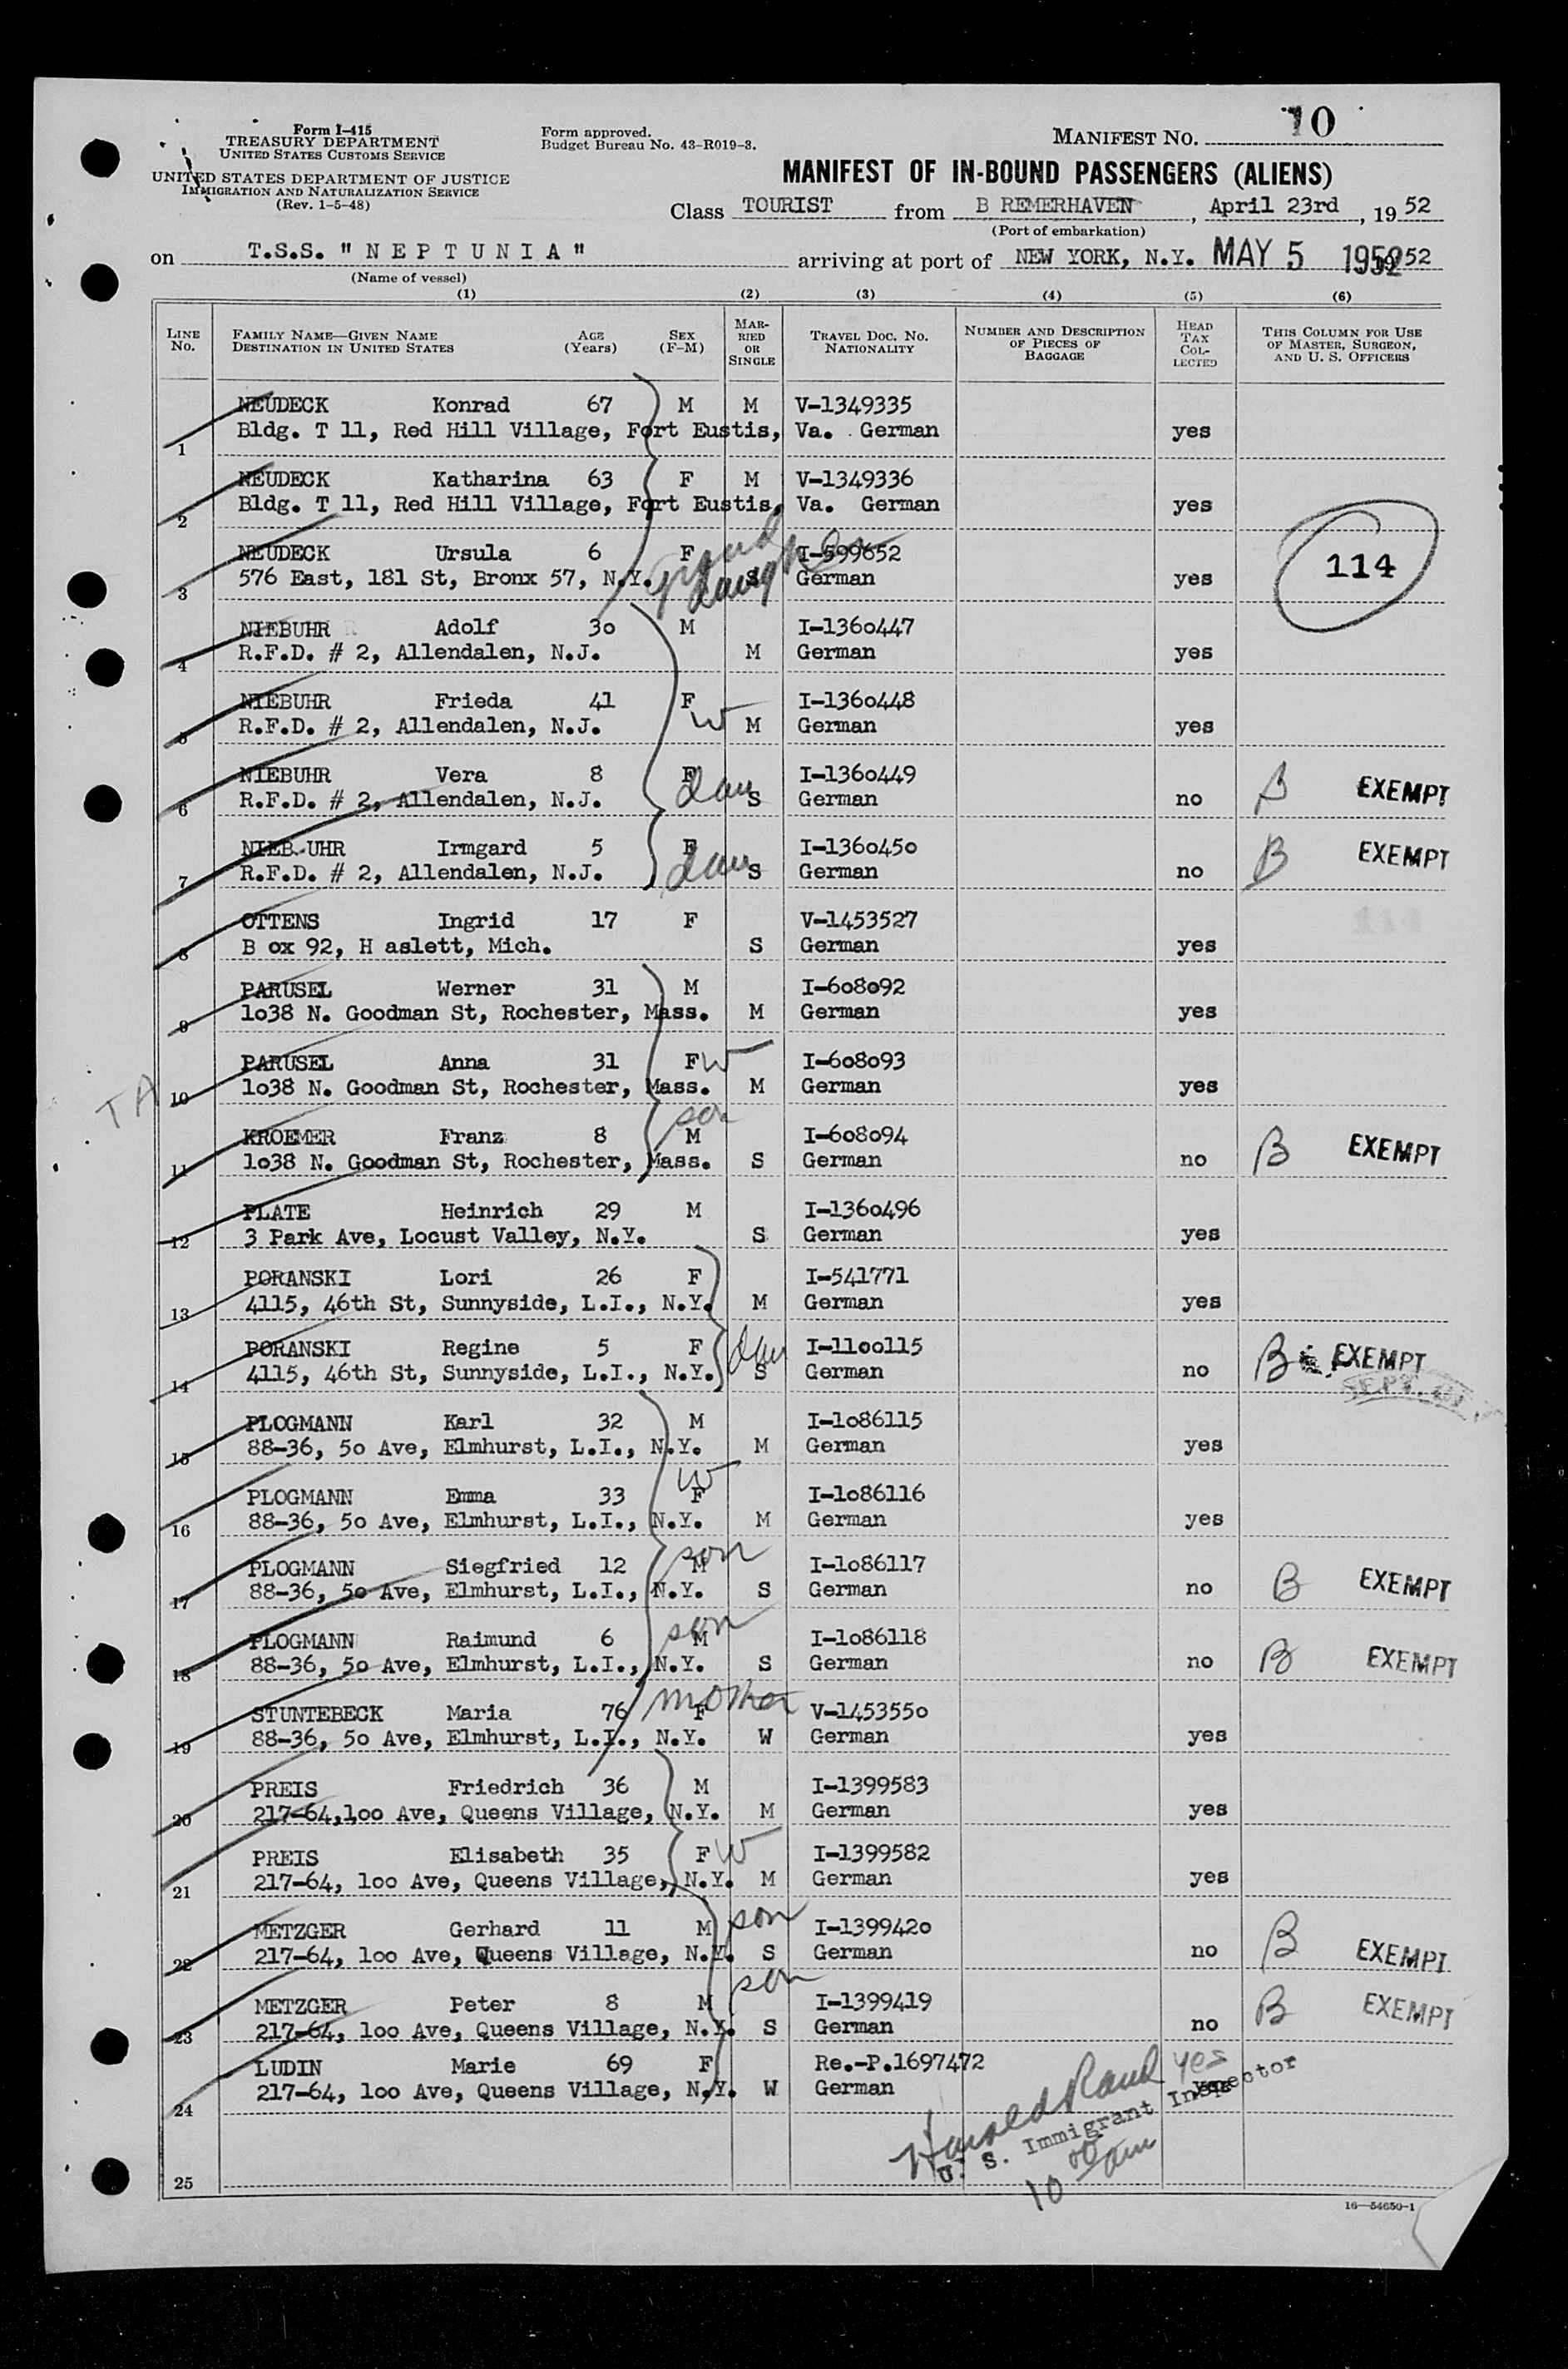 Form I-415
TREASURY DEPARTMENT
UNITED STATES CUSTOMS SERVICE
UNITED STATES DEPARTMENT OF JUSTICE
IMMIGRATION AND NATURALIZATION SERVICE
(Rev. 1-5-48)
Form approved.
Budget Bureau No. 43-R019-3.
MANIFEST NO. 10
MANIFEST OF IN-BOUND PASSENGERS (ALIENS)
Class TOURIST from B REMERHAVEN, April 23rd, 19 52
(Port of embarkation)
on T.S.S. "NEPTUNIA" arriving at port of NEW YORK, N.Y. MAY 5 1952 52
(Name of vessel)
(1) (2) (3) (4) (5) (6)
LINE No. FAMILY NAME—GIVEN NAME DESTINATION IN UNITED STATES AGE (Years) SEX (F-M) MARRIED OR SINGLE TRAVEL DOC. NO. NATIONALITY NUMBER AND DESCRIPTION OF PIECES OF BAGGAGE HEAD TAX COLLECTED THIS COLUMN FOR USE OF MASTER, SURGEON, AND U. S. OFFICERS
NEUDECK Konrad 67 M M V-1349335
1 Bldg. T 11, Red Hill Village, Fort Eustis, Va. German yes
NEUDECK Katharina 63 F M V-1349336
2 Bldg. T 11, Red Hill Village, Fort Eustis, Va. German yes
NEUDECK Ursula 6 F grand daughter I-599652
3 576 East, 181 St, Bronx 57, N.Y. S German yes 114
NIEBUHR Adolf 30 M I-1360447
4 R.F.D. # 2, Allendalen, N.J. M German yes
NIEBUHR Frieda 41 F I-1360448
5 R.F.D. # 2, Allendalen, N.J. W M German yes
NIEBUHR Vera 8 F I-1360449
6 R.F.D. # 2, Allendalen, N.J. dau S German no B EXEMPT
NIEB UHR Irmgard 5 F I-1360450
7 R.F.D. # 2, Allendalen, N.J. dau S German no B EXEMPT
OTTENS Ingrid 17 F V-1453527
8 B ox 92, H aslett, Mich. S German yes
PARUSEL Werner 31 M I-608092
9 1o38 N. Goodman St, Rochester, Mass. M German yes
PARUSEL Anna 31 F W I-608093
TA 10 1o38 N. Goodman St, Rochester, Mass. M German yes
KROEMER Franz 8 son M I-608094
11 1o38 N. Goodman St, Rochester, Mass. S German no B EXEMPT
PLATE Heinrich 29 M I-1360496
12 3 Park Ave, Locust Valley, N.Y. S German yes
PORANSKI Lori 26 F I-541771
13 4115, 46th St, Sunnyside, L.I., N.Y. M German yes
PORANSKI Regine 5 F dau I-1100115
14 4115, 46th St, Sunnyside, L.I., N.Y. S German no B EXEMPT
PLOGMANN Karl 32 M I-1086115
15 88-36, 5o Ave, Elmhurst, L.I., N.Y. M German yes
PLOGMANN Emma 33 W F I-1086116
16 88-36, 5o Ave, Elmhurst, L.I., N.Y. M German yes
PLOGMANN Siegfried 12 M son I-1086117
17 88-36, 5o Ave, Elmhurst, L.I., N.Y. S German no B EXEMPT
PLOGMANN Raimund 6 M son I-1086118
18 88-36, 5o Ave, Elmhurst, L.I., N.Y. S German no B EXEMPT
STUNTEBECK Maria 76 F mother V-1453550
19 88-36, 5o Ave, Elmhurst, L.I., N.Y. W German yes
PREIS Friedrich 36 M I-1399583
20 217-64,1oo Ave, Queens Village, N.Y. M German yes
PREIS Elisabeth 35 F W I-1399582
21 217-64, 1oo Ave, Queens Village, N.Y. M German yes
METZGER Gerhard 11 M son I-1399420
22 217-64, 1oo Ave, Queens Village, N.Y. S German no B EXEMPT
METZGER Peter 8 M son I-1399419
23 217-64, 1oo Ave, Queens Village, N.Y. S German no B EXEMPT
LUDIN Marie 69 F Re.-P.1697472 yes
24 217-64, 1oo Ave, Queens Village, N.Y. W German yes
Harold
U. S. Immigrant Inspector
10 00 am
25
16—54650-1